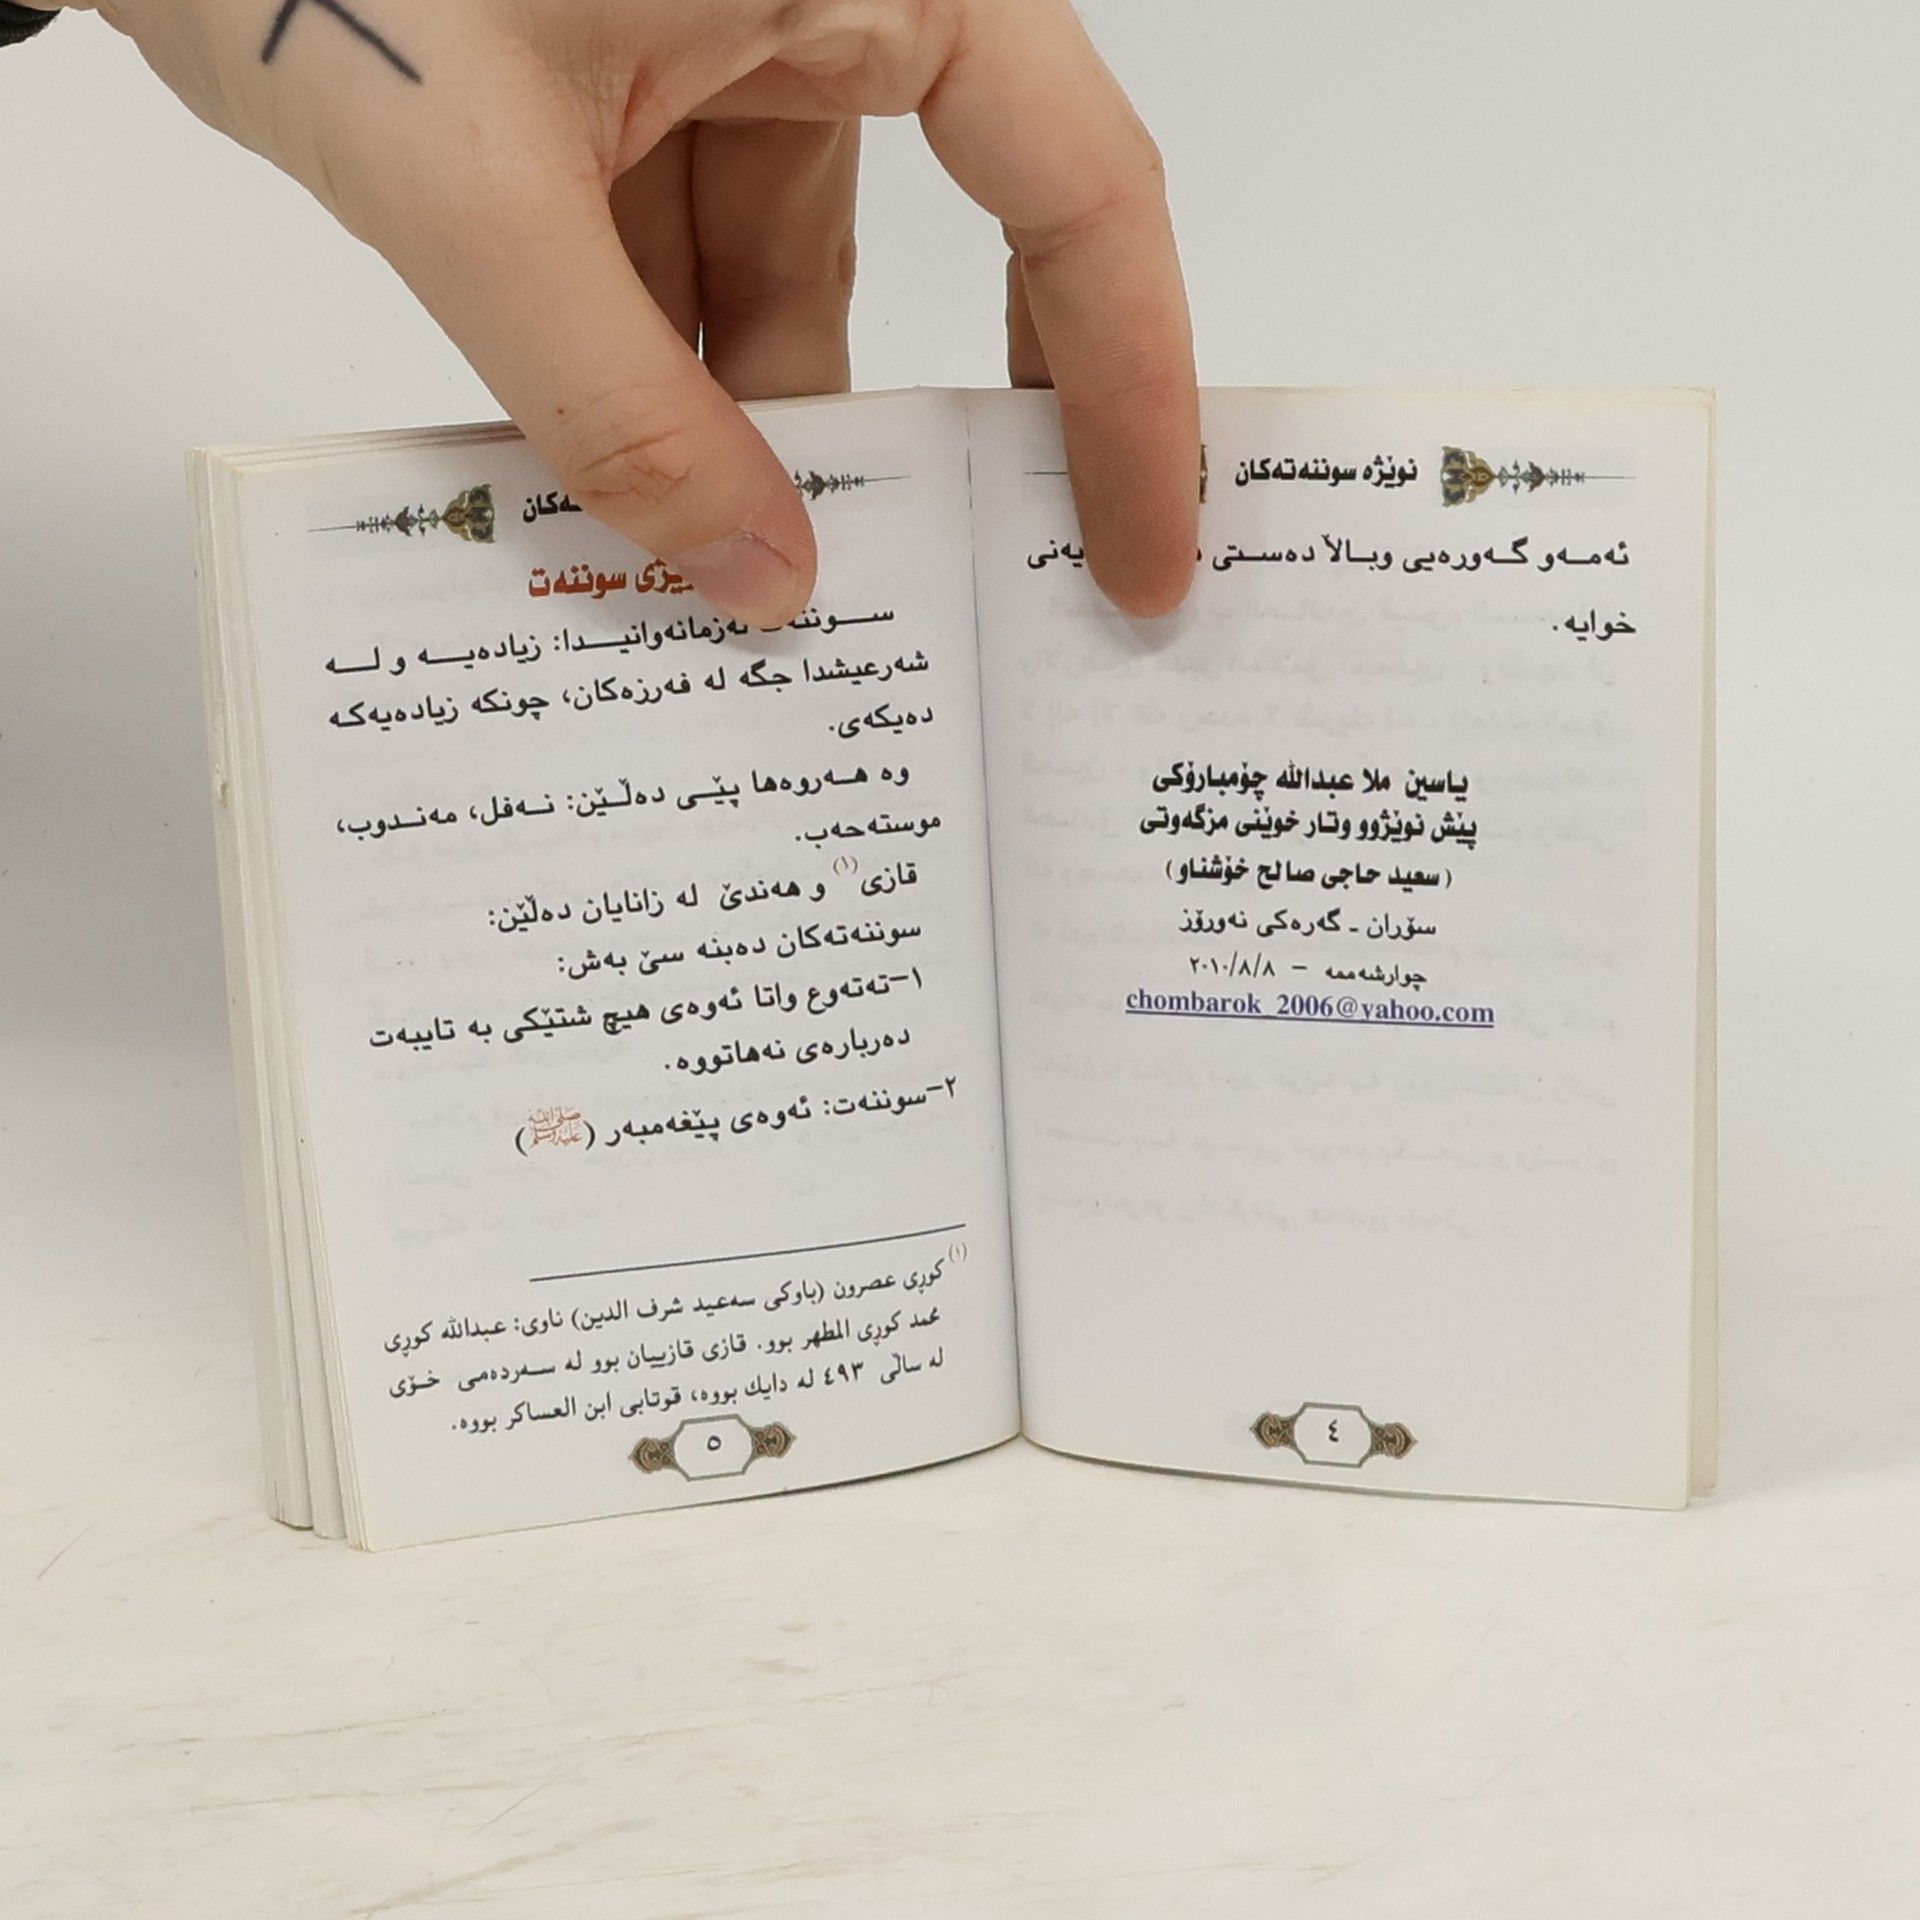 نوێژە سوننەتەکان
ئەمەو گەورەیی وبالاڕ دەستی یەنی
خوایە.
یاسین ملا عبداللە چۆمبارۆکی
پێش نوێژوو وتار خوێنی مزگەوتی
(سعید حاجی صالح خۆشناو)
سۆران - گەرەکی نەورۆز
چوارشەممە – ٢٠١٠/٨/٨
chombarok_2006@yahoo.com
٤
سوننەت
سوننەت لەزمانەوانیدا: زیادەیە و لە
شەرعیشدا جگە لە فەرزەکان، چونکە زیادەیەکە
دەیکەی.
وە هەروەها پێی دەڵێن: نەفل، مەندوب،
موستەحەب.
قازی(١) و هەندێ لە زانایان دەڵێن:
سوننەتەکان دەبنە سێ بەش:
١-تەتەوع واتا ئەوەی هیچ شتێکی بە تایبەت
دەربارەی نەهاتووە.
٢-سوننەت: ئەوەی پێغەمبەر (ﷺ)
(١) کوڕی عصرون (باوکی سەعید شرف الدین) ناوی: عبداللە کوڕی
محمد کوڕی المطهر بوو. قازی قازییان بوو لە سەردەمی خۆی
لە ساڵی ٤٩٣ لە دایك بووە، قوتابی ابن العساکر بووە.
٥